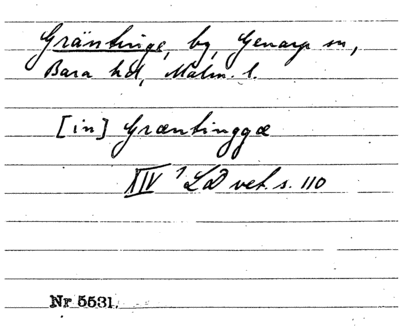 Gräntinge, by, Genarp sn,
Bara hd, Malm. l.
[in] Græntinggæ
XIV 1 LD vet. s. 110
Nr 5531.